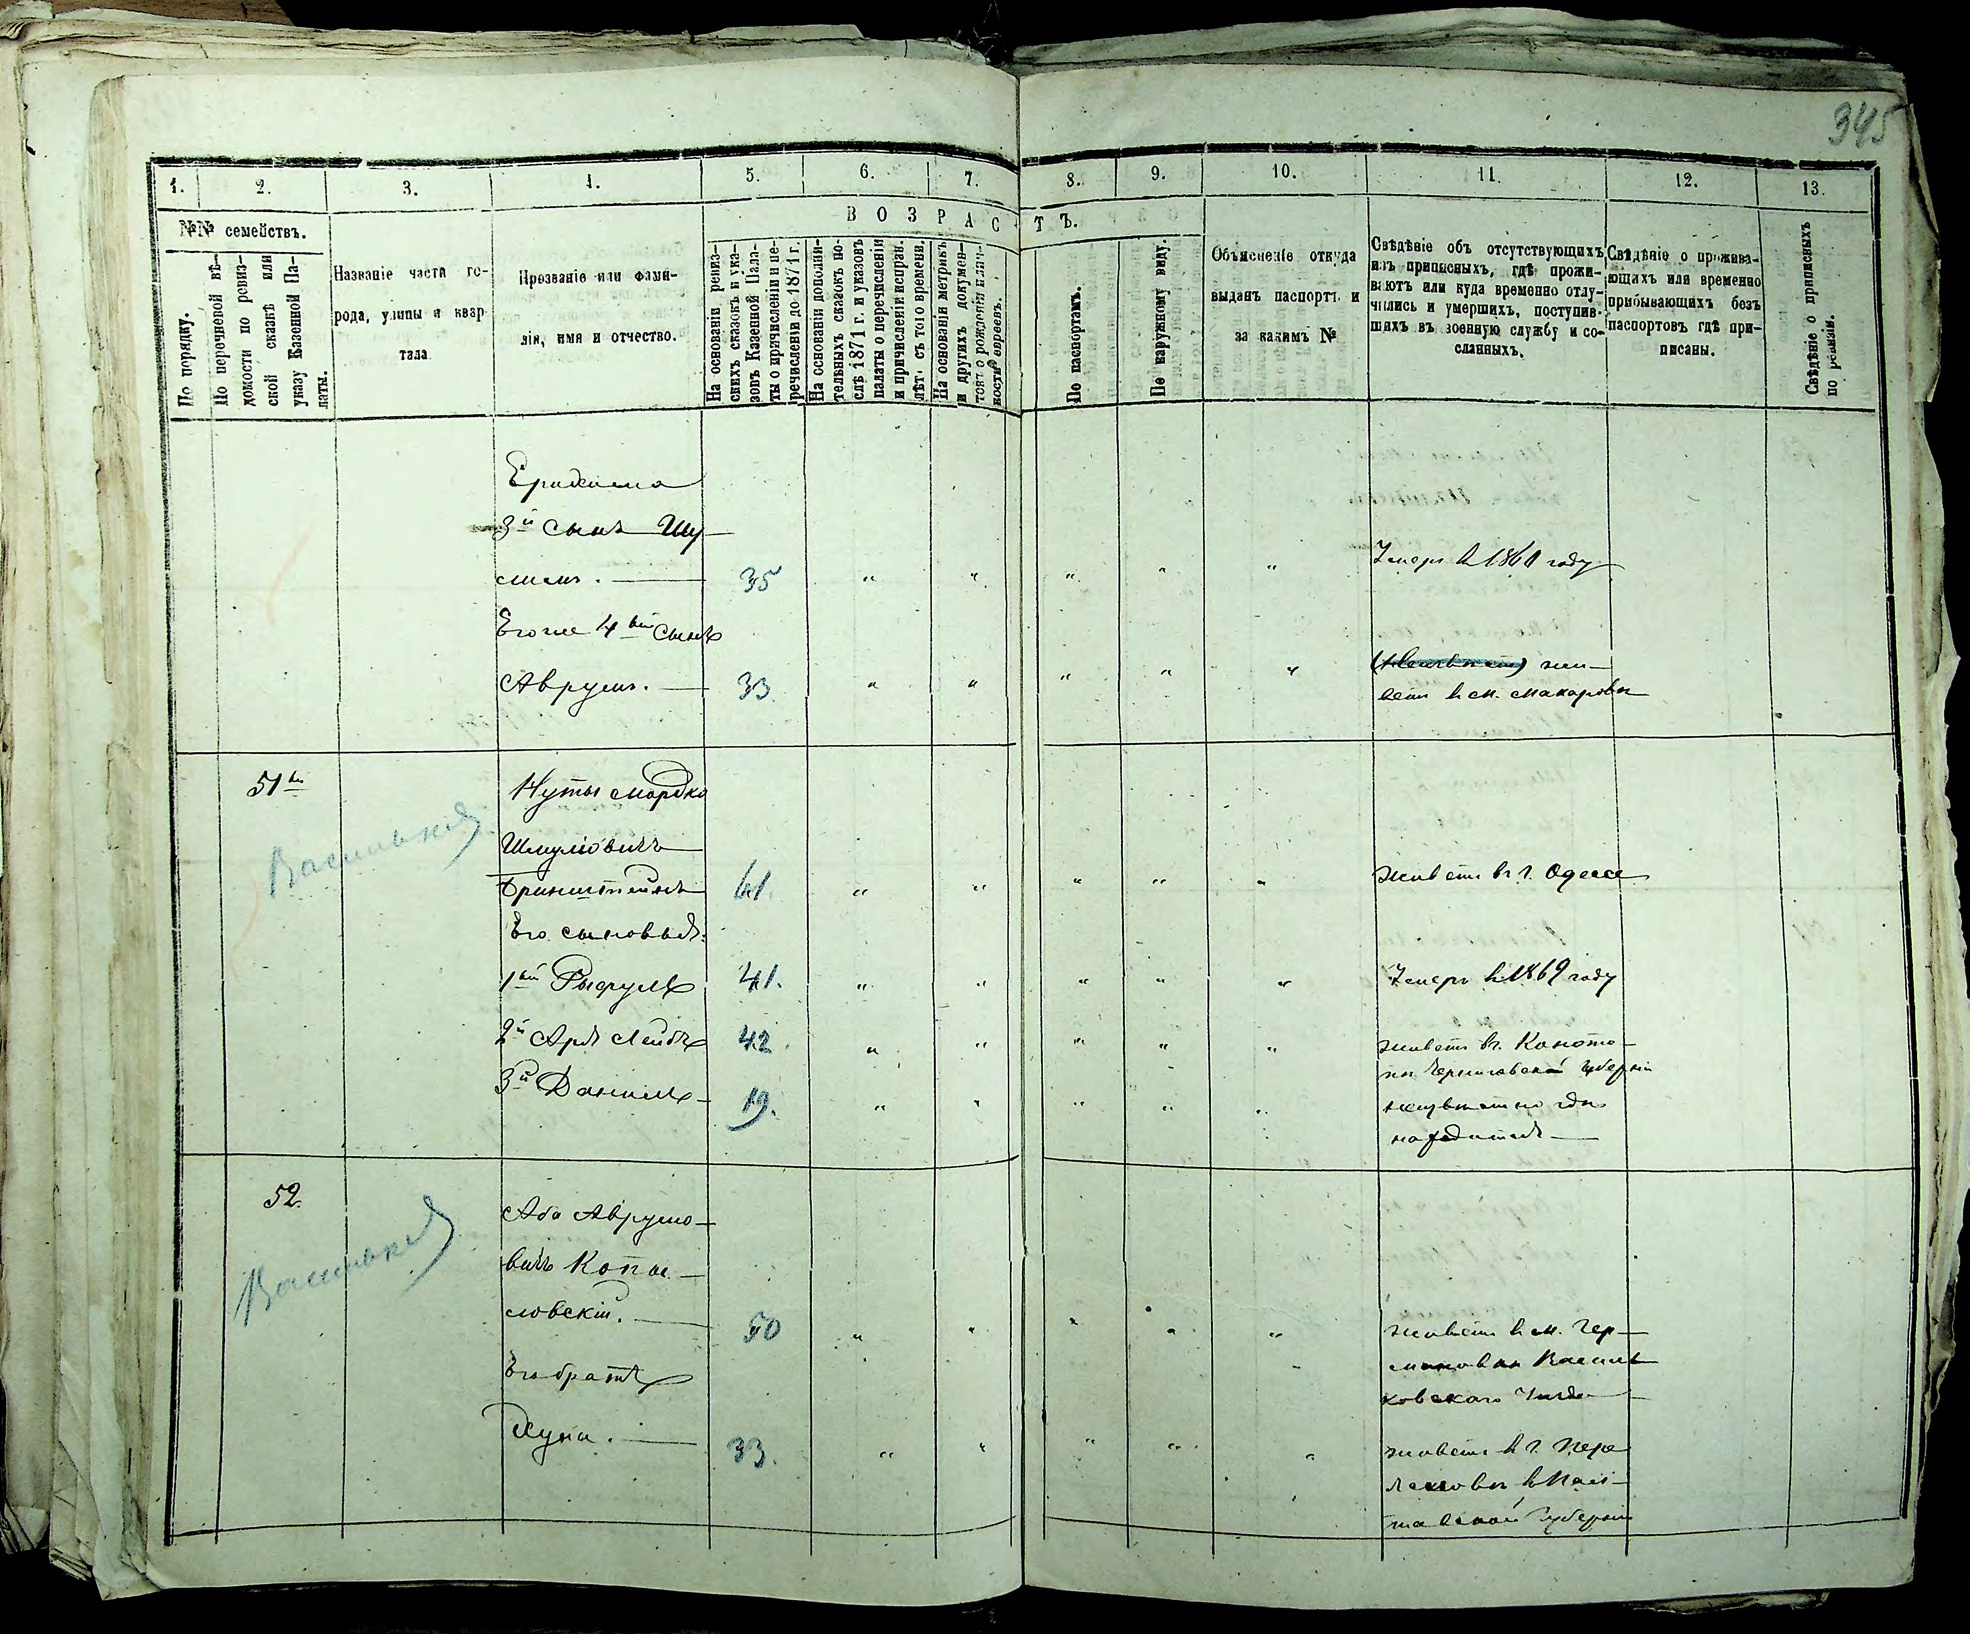 345
1. 2. 3. 4. 5. 6. 7. 8. 9. 10. 11. 12. 13.
№№ семействъ.
ВОЗРАСТЪ.
По порядку.
По перечневой вѣ-
домости по ревиз-
ской сказкѣ или
указу Казенной Па-
латы.
Названіе части го-
рода, улицы и квар
тала
Прозваніе или фами-
лія, имя и отчество.
На основаніи ревиз-
скихъ сказокъ и ука-
зовъ Казенной Пала-
ты о причисленіи и пе-
речисленіи до 1871 г.
На основаніи дополни-
тельныхъ сказокъ по-
слѣ 1871 г. и указовъ
палаты о перечисленіи
и причисленіи исправ.
лѣтъ съ того времени.
На основаніи метрикъ
и другихъ докумен-
товъ о рожденіи
евреевъ.
По паспортамъ.
По наружному виду.
Объясненіе откуда
выданъ паспортъ и
за какимъ №
Свѣдѣніе объ отсутствующихъ
изъ приписныхъ, гдѣ прожи-
ваютъ или куда временно отлу-
чились и умершихъ, поступив-
шихъ въ военную службу и со-
сланныхъ.
Свѣдѣніе о прожива-
ющихъ или временно
прибывающихъ безъ
паспортовъ гдѣ при-
писаны.
Свѣдѣніе о приписныхъ
по ревизіи.
3й сынъ Шу
35
Умеръ в 1861 году
Егоже 4ый сынъ
Аврумъ. 33
жи-
ветъ в м. Макаровѣ
51
Васильков
Нуты Мордко
Шмулiовичъ
Бринштейнъ 61.
живетъ въ г. Одессе
Его сыновья:
1ый 41.
Умеръ в 1869 году
2й Аря Лейбъ 42
живетъ въ. Коното-
пѣ Черниговской губерніи
3й Данилъ 19.
неизвѣстно гдѣ
находится
52.
Васильков
Аба Аврумо-
вичъ Копы-
ловскій. 50
живетъ в м. Гер-
мановкѣ Василь
ковскаго Уезда
Его братъ
33.
живетъ в г. Пере
яславѣ Пол-
тавской Губерніи